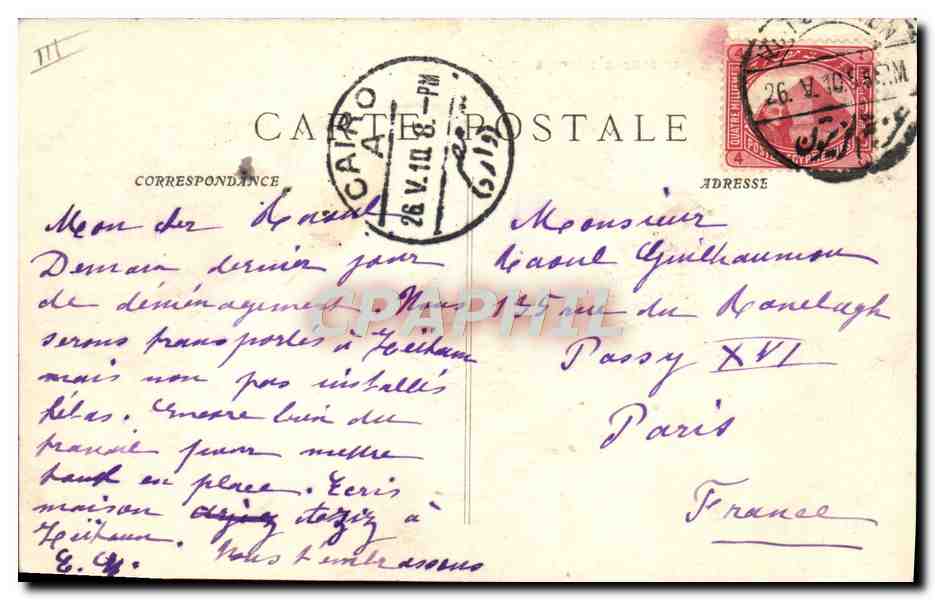 III
CARTE POSTALE
CORRESPONDANCE
ADRESSE
QUATRE MILLIEMES
4 4
POSTES EGYPTIENNES
26. V. 10. PM
CAIRO
A
26.V.10 8.-PM
Mon cher Raoul
Demain dernier jour
de déménagement. Nous
serons transportés à Zeïtoun
mais non pas installés
hélas. Encore bien du
travail pour mettre
tout en place. Ecris
maison à
Zeïtoun. Nous t'embrassons
E. G.
Monsieur
Raoul Guilhaumon
135 rue du Ranelagh
Passy XVI
Paris
France
CPAPHIL